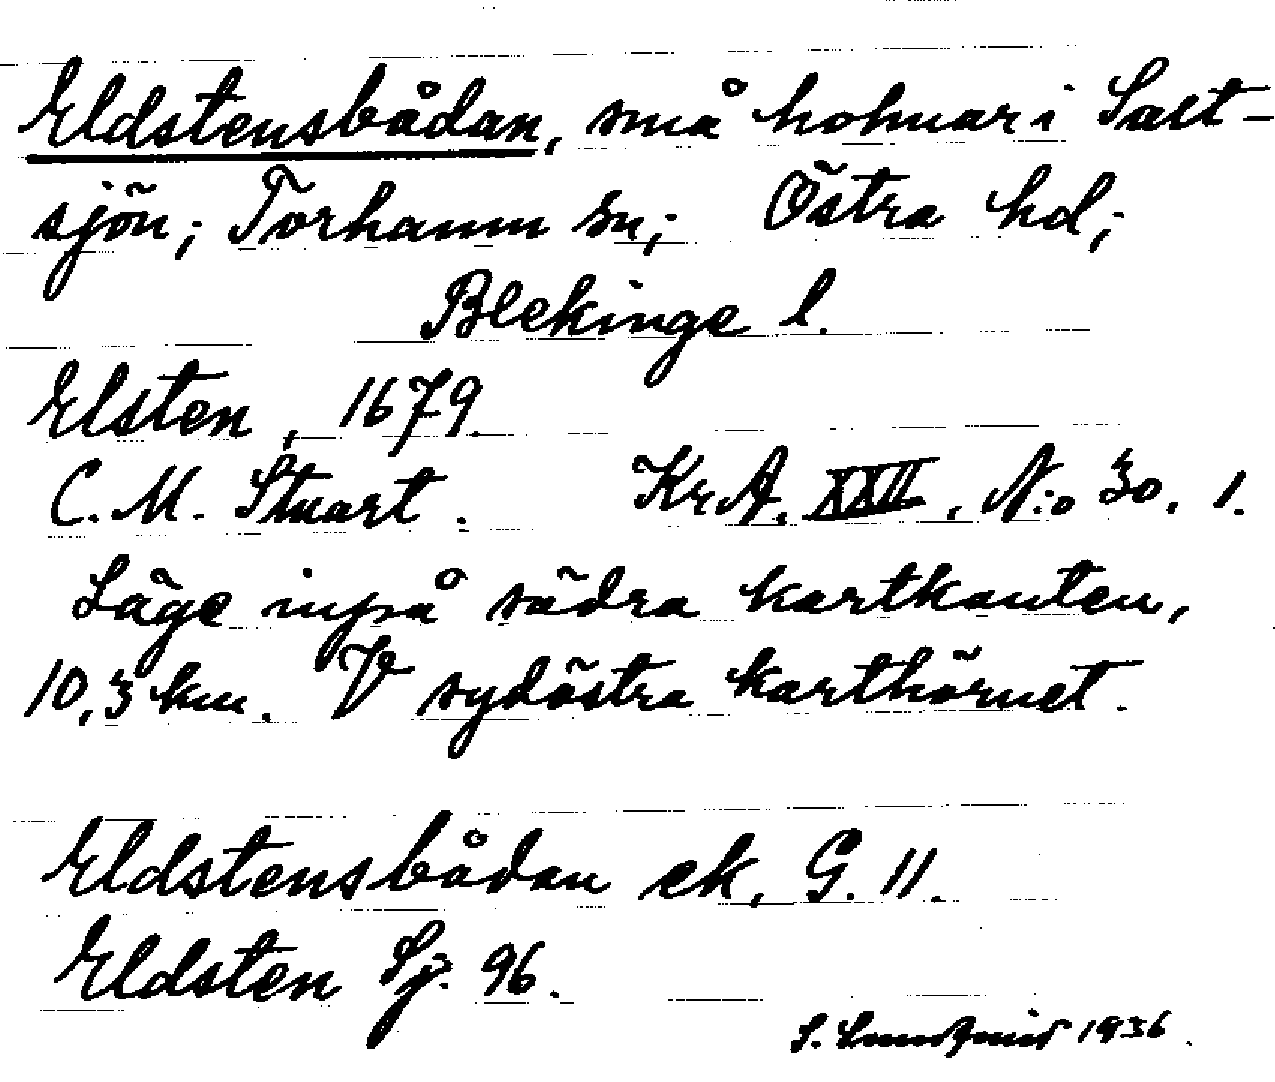 Eldstensbådan, små holmar i Salt-
sjön; Torhamn sn; Östra hd;
Blekinge l.
Elsten, 1679.
C. M. Stuart. Kr. A. XXII, N:o 30. 1.
Läge inpå södra kartkanten,
10,3 km. V sydöstra karthörnet.
Eldstensbådan ek. G. 11.
Eldsten Sj. 96.
S. 1936.